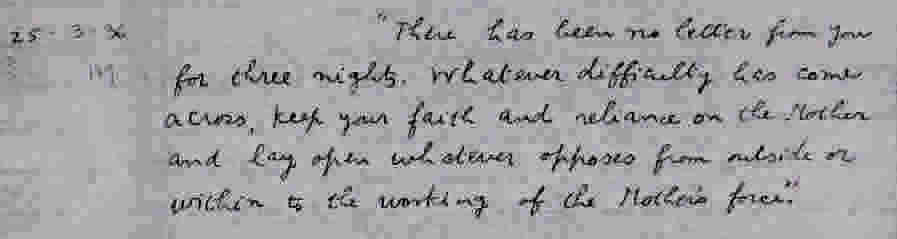 25-3-36 "There has been no letter from you
for three nights. Whatever difficulty has come
across, keep your faith and reliance on the Mother
and lay open whatever opposes from outside or
within to the working of the Mother's force."